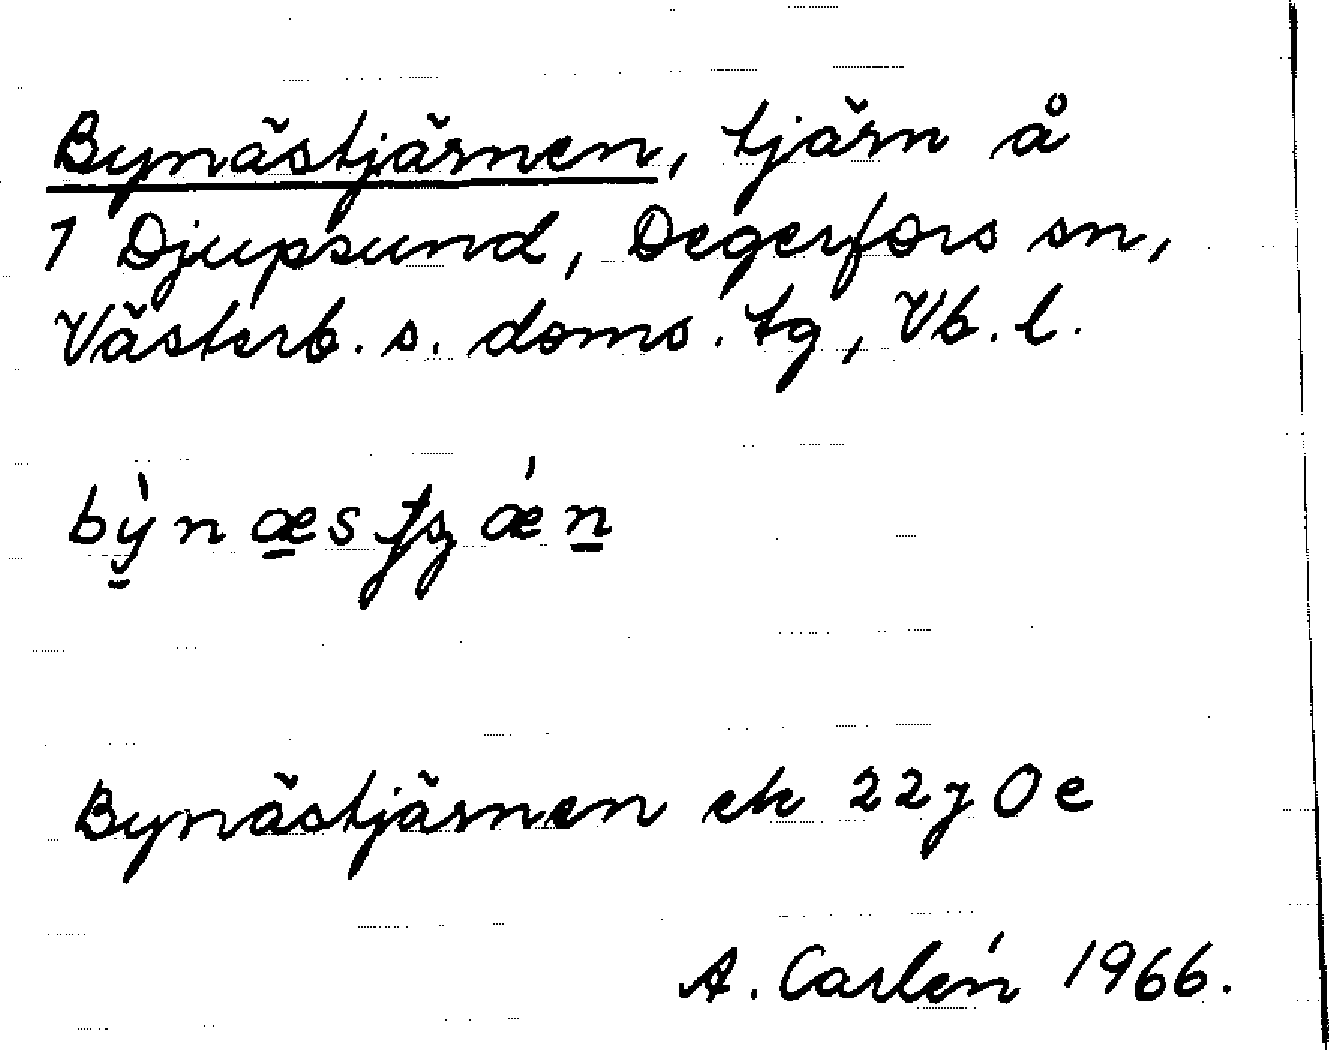 Bynästjärnen, tjärn å
1 Djupsund, Degerfors sn,
Västerb. s. doms. tg, Vb. l.
Bynästjärnen ek 22j0e
A. Carlén 1966.